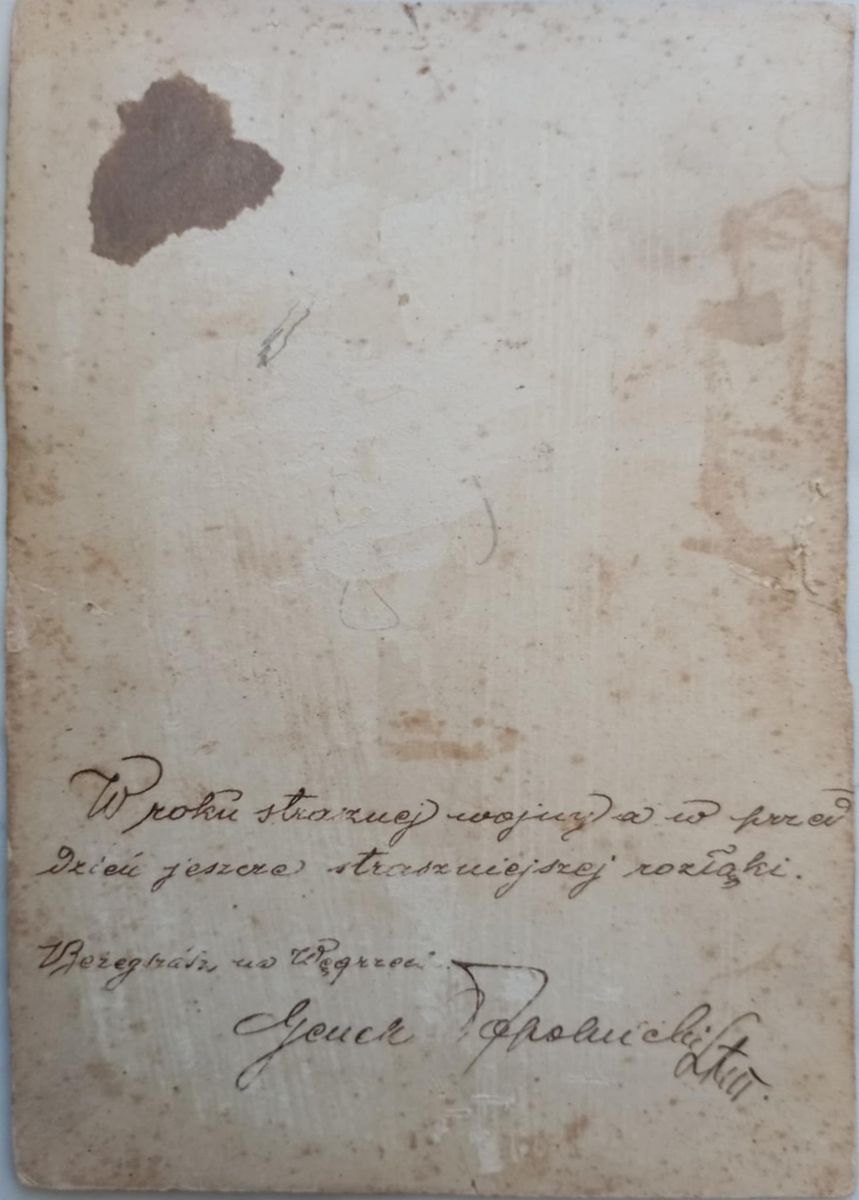 W roku strasznej wojny a w przed
dzień jeszcze straszniejszej rozłąki.
Beregszász na Węgrzech
Topolnicki